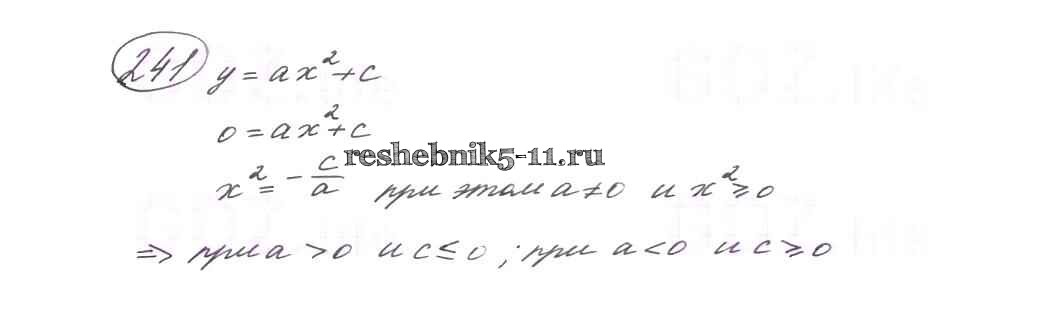 241 y = ax² + c
0 = ax² + c
reshebnik5-11.ru
x² = -c/a при этом a ≠ 0 и x² ≥ 0
⇒ при a > 0 и c ≤ 0 ; при a < 0 и c ≥ 0